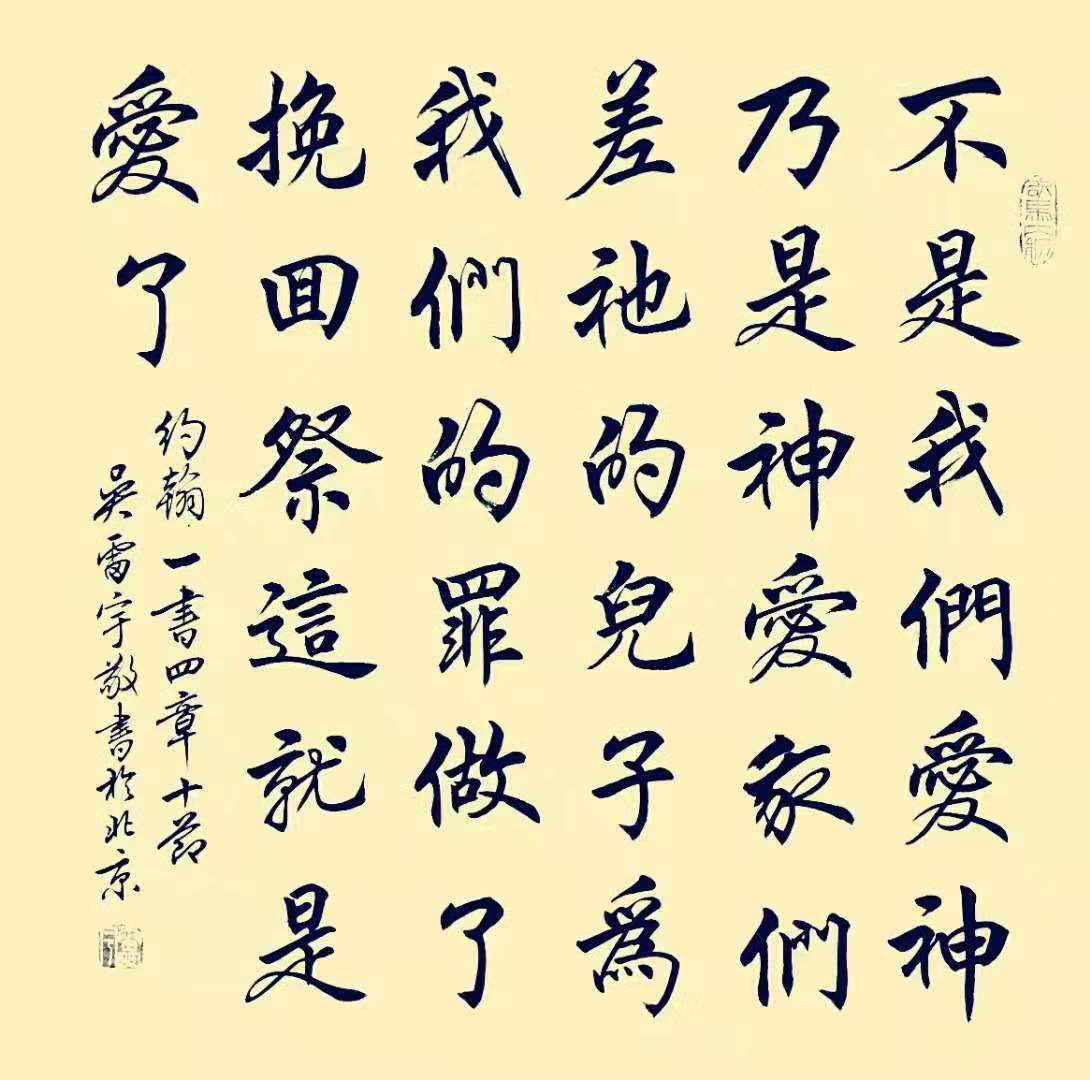 不是我們愛神
乃是神愛我們
差祂的兒子爲
我們的罪做了
挽回祭這就是
愛了
約翰一書四章十節
吳雷宇敬書於北京